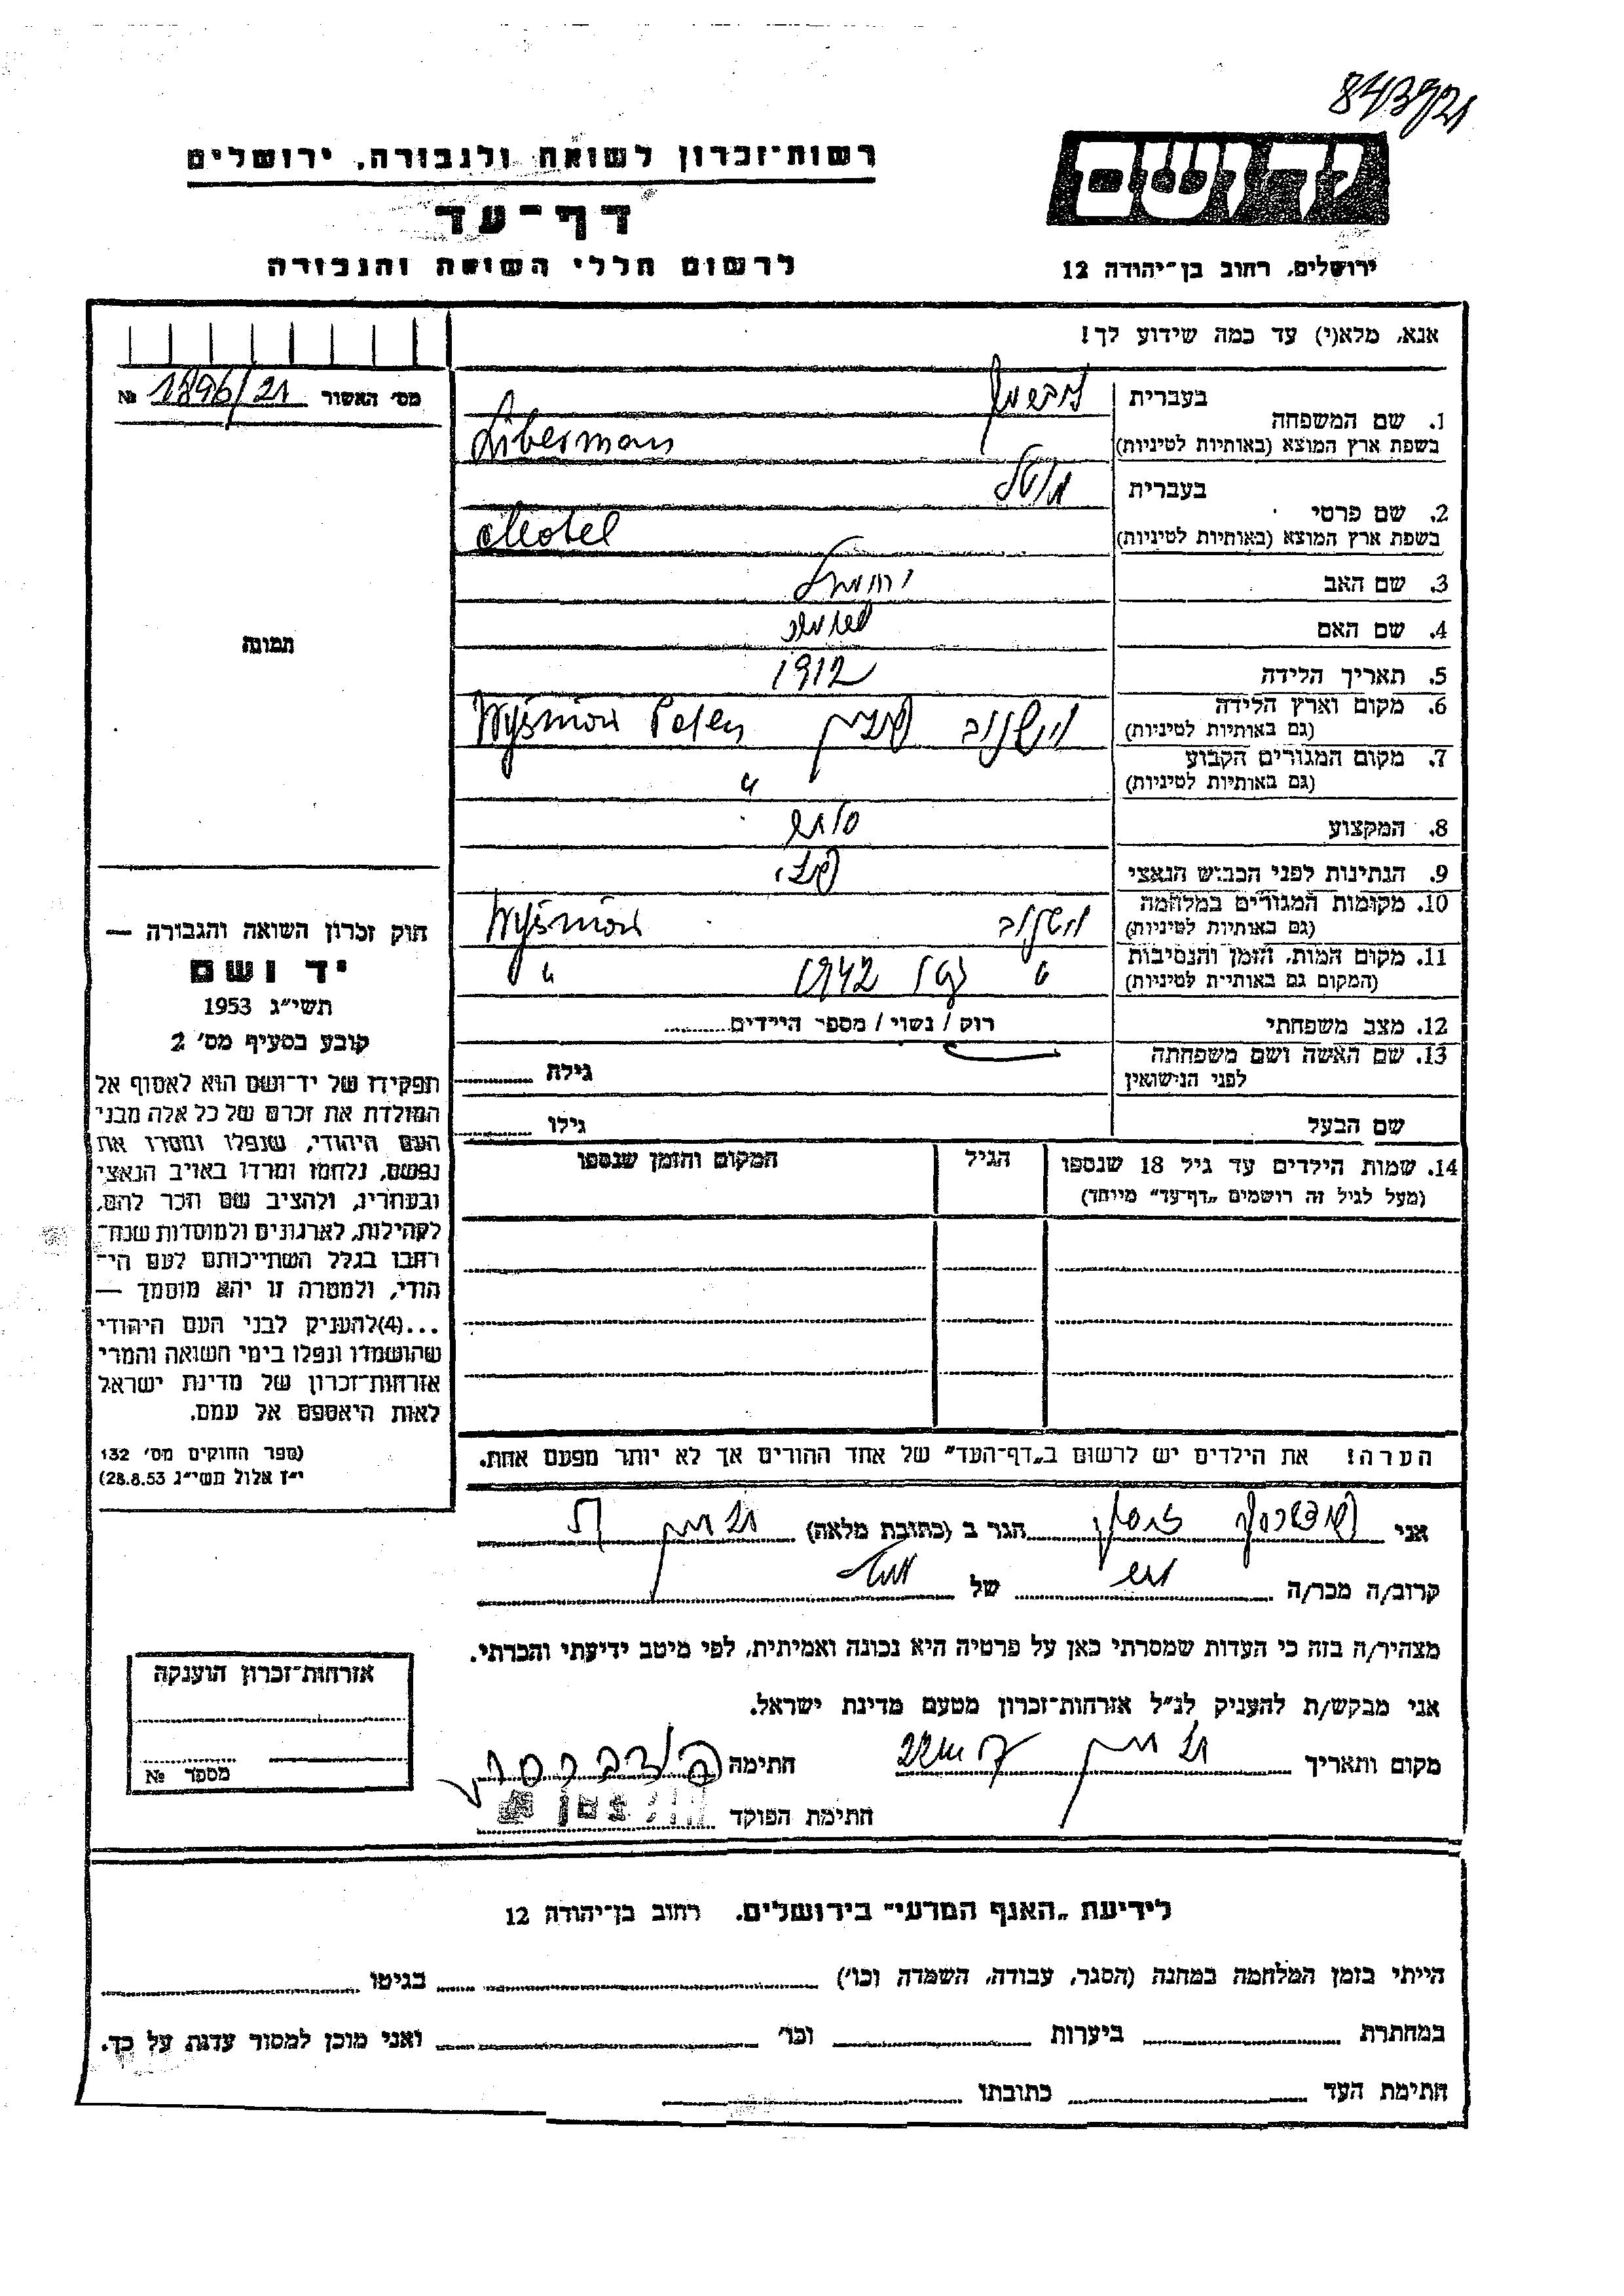 843921
רשות־זכרון לשואה ולגבורה, ירושלים
יד ושם
דף־עד
לרשום חללי השואה והגבורה
ירושלים, רחוב בן־יהודה 12
אנא, מלא(י) עד כמה שידוע לך!
מס׳ האשור 1896/21 №
בעברית ליברמן
1. שם המשפחה
בשפת ארץ המוצא (באותיות לטיניות) Liberman
בעברית מוטל
2. שם פרטי
בשפת ארץ המוצא (באותיות לטיניות) Motel
3. שם האב
4. שם האם
תמונה
5. תאריך הלידה 1912
6. מקום וארץ הלידה
(גם באותיות לטיניות) וישניוב פולין Wyśniow Polen
7. מקום המגורים הקבוע
(גם באותיות לטיניות) "
8. המקצוע סוחר
9. הנתינות לפני הכבוש הנאצי פולני
10. מקומות המגורים במלחמה
(גם באותיות לטיניות) וישניוב Wyśniow
11. מקום המות, הזמן והנסיבות
(המקום גם באותיות לטיניות) " 1942 "
12. מצב משפחתי רווק / נשוי / מספר הילדים
13. שם האשה ושם משפחתה
לפני הנישואין גילה
שם הבעל גילו
14. שמות הילדים עד גיל 18 שנספו הגיל המקום והזמן שנספו
(מעל לגיל זה רושמים „דף־עד״ מיוחד)
חוק זכרון השואה והגבורה —
יד ושם
תשי״ג 1953
קובע בסעיף מס׳ 2
תפקידו של יד־ושם הוא לאסוף אל
המולדת את זכרם של כל אלה מבני
העם היהודי, שנפלו ומסרו את
נפשם, נלחמו ומרדו באויב הנאצי
ובעוזריו, ולהציב שם וזכר להם,
לקהילות, לארגונים ולמוסדות שנח־
רבו בגלל השתייכותם לעם הי־
הודי, ולמטרה זו יהא מוסמך —
...(4)להעניק לבני העם היהודי
שהושמדו ונפלו בימי השואה והמרי
אזרחות־זכרון של מדינת ישראל
לאות היאספם אל עמם.
(ספר החוקים מס׳ 132
י״ז אלול תשי״ג 28.8.53)
הערה! את הילדים יש לרשום ב„דף־העד״ של אחד ההורים אך לא יותר מפעם אחת.
אני הגר ב (כתובת מלאה)
קרוב/ה מכר/ה של
מצהיר/ה בזה כי העדות שמסרתי כאן על פרטיה היא נכונה ואמיתית, לפי מיטב ידיעתי והכרתי.
אני מבקש/ת להעניק לנ״ל אזרחות־זכרון מטעם מדינת ישראל.
מקום ותאריך חתימה
חתימת הפוקד
אזרחות־זכרון הוענקה
מספר №
לידיעת „האגף המדעי״ בירושלים. רחוב בן־יהודה 12
הייתי בזמן המלחמה במחנה (הסגר, עבודה, השמדה וכו׳) בגיטו
במחתרת ביערות וכו׳ ואני מוכן למסור עדות על כך.
חתימת העד כתובתו